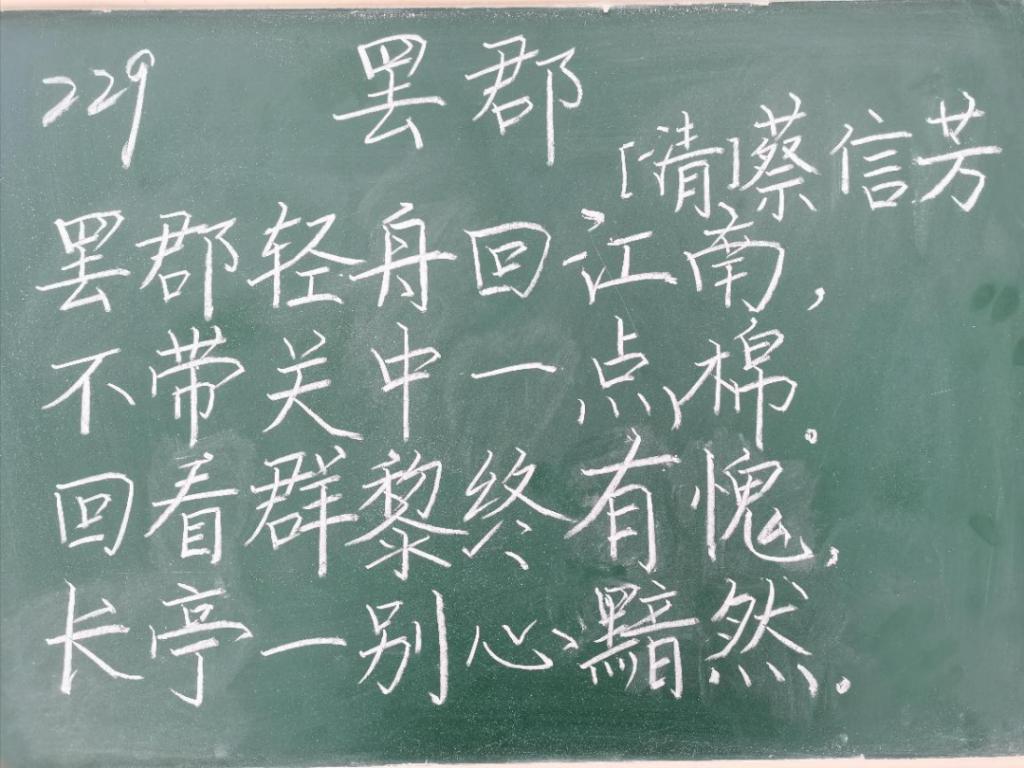 229 罢郡
[清]蔡信芳
罢郡轻舟回江南，
不带关中一点棉。
回看群黎终有愧，
长亭一别心黯然。